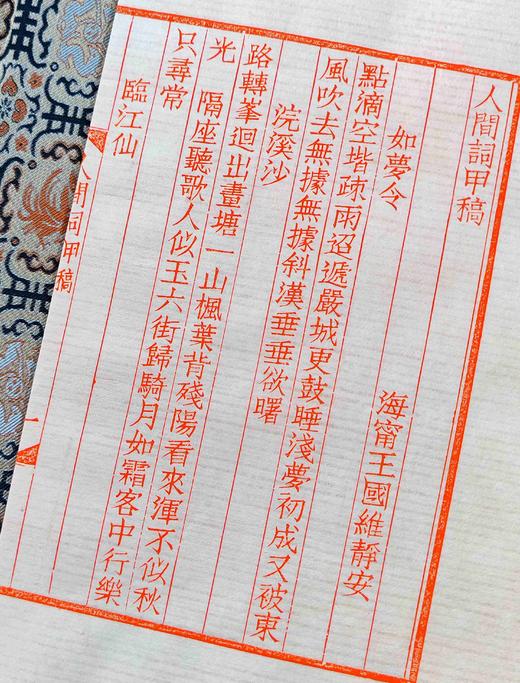 人間詞甲稿
海甯王國維靜安
如夢令
點滴空堦疎雨迢遞嚴城更鼓睡淺夢初成又被東
風吹去無據無據斜漢垂垂欲曙
浣溪沙
路轉峯迴出畫塘一山楓葉背殘陽看來渾不似秋
光　隔座聽歌人似玉六街歸騎月如霜客中行樂
只尋常
臨江仙
人間詞甲稿
一